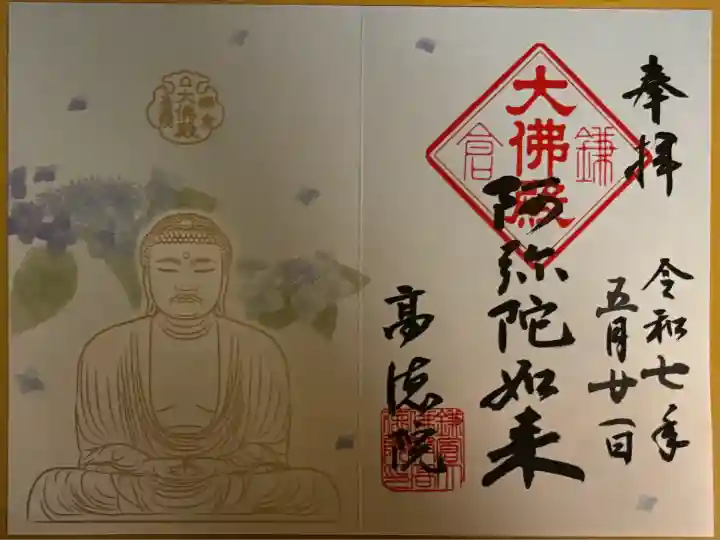 奉拝
令和七年
五月廿一日
大佛殿
鎌倉
阿弥陀如来
高徳院
大佛殿